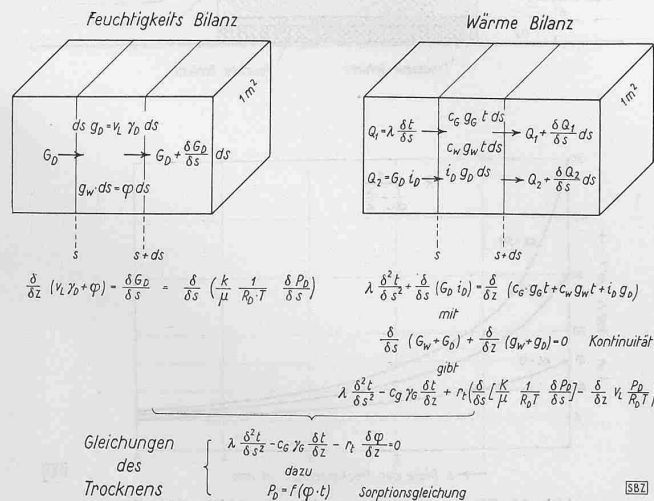 Feuchtigkeits Bilanz
1m²
ds g_D = v_L γ_D ds
G_D → → G_D + δG_D/δs ds
g_w · ds = φ ds
s s + ds
δ/δz (v_L γ_D + φ) = δG_D/δs = δ/δs (k/μ 1/(R_D·T) δP_D/δs)
Wärme Bilanz
1m²
Q₁ = λ δt/δs → c_G g_G t ds → Q₁ + δQ₁/δs ds
c_w g_w t ds
Q₂ = G_D i_D → i_D g_D ds → Q₂ + δQ₂/δs ds
s s + ds
λ δ²t/δs² + δ/δs (G_D i_D) = δ/δz (c_G · g_G t + c_w g_w t + i_D g_D)
mit
δ/δs (G_w + G_D) + δ/δz (g_w + g_D) = 0 Kontinuität
gibt
λ δ²t/δs² - c_g γ_G δt/δz + r_t (δ/δs [K/μ 1/(R_D T) δP_D/δs] - δ/δz v_L P_D/(R_D T)
Gleichungen
des
Trocknens
λ δ²t/δs² - c_G γ_G δt/δz - r_t δφ/δz = 0
dazu
P_D = f(φ · t) Sorptionsgleichung
SBZ